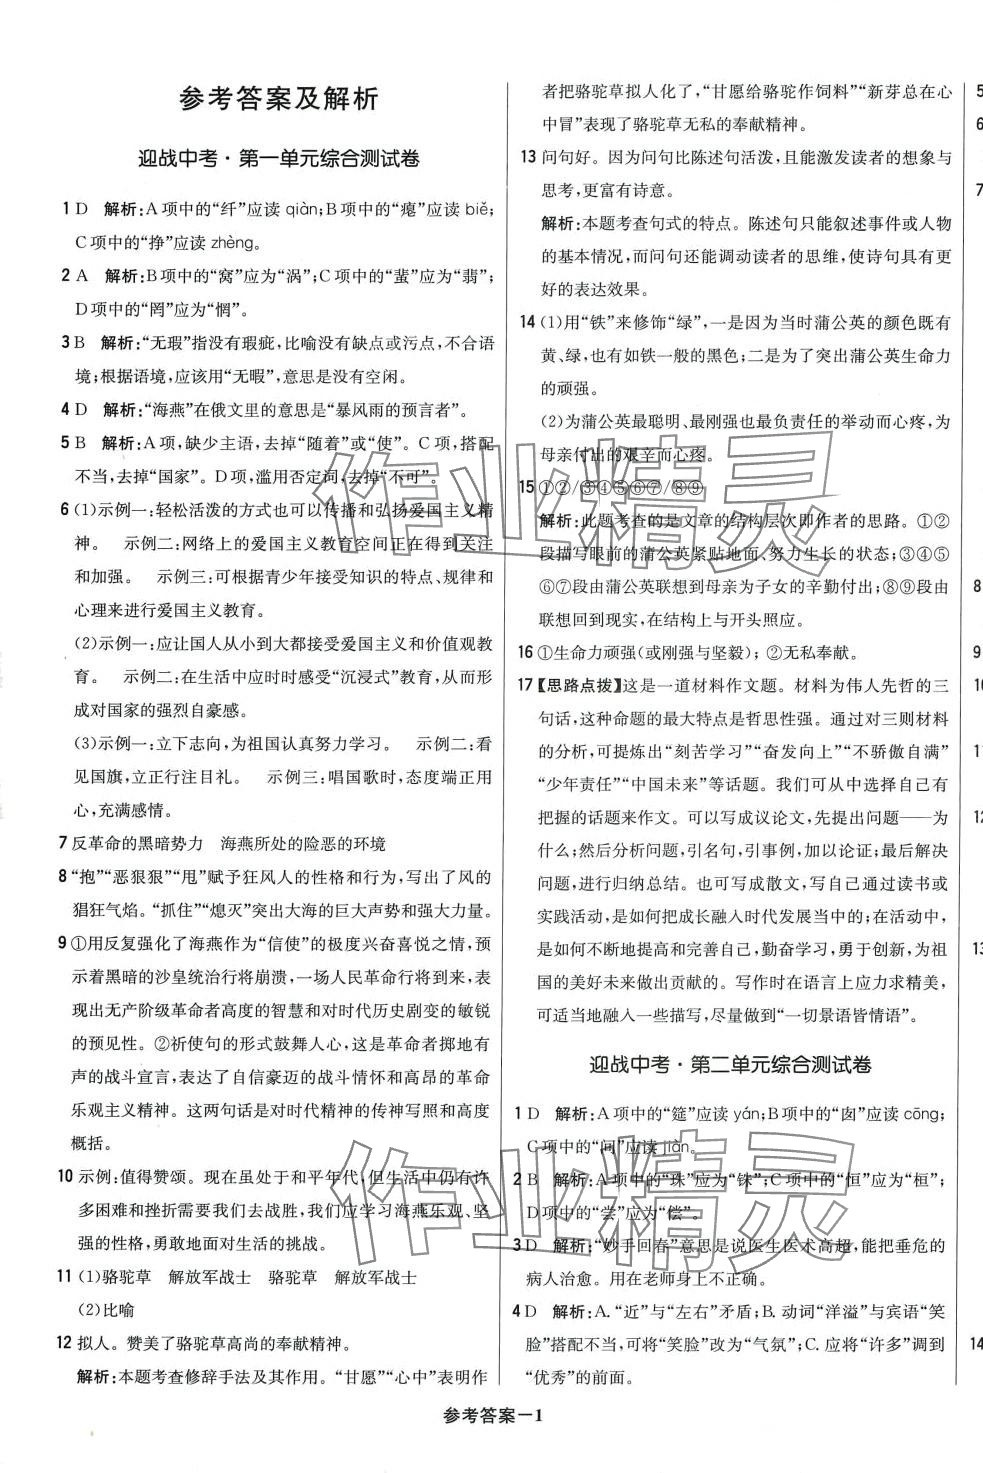 参考答案及解析
迎战中考·第一单元综合测试卷
1 D 解析:A项中的“纤”应读 qiàn;B项中的“瘪”应读 biě;
C项中的“挣”应读 zhèng。
2 A 解析:B项中的“窝”应为“涡”;C项中的“蜚”应为“翡”;
D项中的“罔”应为“惘”。
3 B 解析:“无瑕”指没有瑕疵,比喻没有缺点或污点,不合语
境;根据语境,应该用“无暇”,意思是没有空闲。
4 D 解析:“海燕”在俄文里的意思是“暴风雨的预言者”。
5 B 解析:A项,缺少主语,去掉“随着”或“使”。C项,搭配
不当,去掉“国家”。D项,滥用否定词,去掉“不可”。
6 (1)示例一:轻松活泼的方式也可以传播和弘扬爱国主义精
神。 示例二:网络上的爱国主义教育空间正在得到关注
和加强。 示例三:可根据青少年接受知识的特点、规律和
心理来进行爱国主义教育。
(2)示例一:应让国人从小到大都接受爱国主义和价值观教
育。 示例二:在生活中应时时感受“沉浸式”教育,从而形
成对国家的强烈自豪感。
(3)示例一:立下志向,为祖国认真努力学习。 示例二:看
见国旗,立正行注目礼。 示例三:唱国歌时,态度端正用
心,充满感情。
7 反革命的黑暗势力 海燕所处的险恶的环境
8 “抱”“恶狠狠”“甩”赋予狂风人的性格和行为,写出了风的
猖狂气焰。“抓住”“熄灭”突出大海的巨大声势和强大力量。
9 ①用反复强化了海燕作为“信使”的极度兴奋喜悦之情,预
示着黑暗的沙皇统治行将崩溃,一场人民革命行将到来,表
现出无产阶级革命者高度的智慧和对时代历史剧变的敏锐
的预见性。②祈使句的形式鼓舞人心,这是革命者掷地有
声的战斗宣言,表达了自信豪迈的战斗情怀和高昂的革命
乐观主义精神。这两句话是对时代精神的传神写照和高度
概括。
10 示例:值得赞颂。现在虽处于和平年代,但生活中仍有许
多困难和挫折需要我们去战胜,我们应学习海燕乐观、坚
强的性格,勇敢地面对生活的挑战。
11 (1)骆驼草 解放军战士 骆驼草 解放军战士
(2)比喻
12 拟人。赞美了骆驼草高尚的奉献精神。
解析:本题考查修辞手法及其作用。“甘愿”“心中”表明作
者把骆驼草拟人化了,“甘愿给骆驼作饲料”“新芽总在心
中冒”表现了骆驼草无私的奉献精神。
13 问句好。因为问句比陈述句活泼,且能激发读者的想象与
思考,更富有诗意。
解析:本题考查句式的特点。陈述句只能叙述事件或人物
的基本情况,而问句还能调动读者的思维,使诗句具有更
好的表达效果。
14 (1)用“铁”来修饰“绿”,一是因为当时蒲公英的颜色既有
黄、绿,也有如铁一般的黑色;二是为了突出蒲公英生命力
的顽强。
(2)为蒲公英最聪明、最刚强也最负责任的举动而心疼,为
母亲付出的艰辛而心疼。
15 ①②/③④⑤⑥⑦/⑧⑨
解析:此题考查的是文章的结构层次即作者的思路。①②
段描写眼前的蒲公英紧贴地面、努力生长的状态;③④⑤
⑥⑦段由蒲公英联想到母亲为子女的辛勤付出;⑧⑨段由
联想回到现实,在结构上与开头照应。
16 ①生命力顽强(或刚强与坚毅);②无私奉献。
17【思路点拨】这是一道材料作文题。材料为伟人先哲的三
句话,这种命题的最大特点是哲思性强。通过对三则材料
的分析,可提炼出“刻苦学习”“奋发向上”“不骄傲自满”
“少年责任”“中国未来”等话题。我们可从中选择自己有
把握的话题来作文。可以写成议论文,先提出问题——为
什么;然后分析问题,引名句,引事例,加以论证;最后解决
问题,进行归纳总结。也可写成散文,写自己通过读书或
实践活动,是如何把成长融入时代发展当中的;在活动中,
是如何不断地提高和完善自己,勤奋学习,勇于创新,为祖
国的美好未来做出贡献的。写作时在语言上应力求精美,
可适当地融入一些描写,尽量做到“一切景语皆情语”。
迎战中考·第二单元综合测试卷
1 D 解析:A项中的“筵”应读 yán;B项中的“囱”应读 cōng;
C项中的“间”应读 jiàn。
2 B 解析:A项中的“珠”应为“铢”;C项中的“恒”应为“桓”;
D项中的“尝”应为“偿”。
3 D 解析:“妙手回春”意思是说医生医术高超,能把垂危的
病人治愈。用在老师身上不正确。
4 D 解析:A.“近”与“左右”矛盾;B.动词“洋溢”与宾语“笑
脸”搭配不当,可将“笑脸”改为“气氛”;C.应将“许多”调到
“优秀”的前面。
5
6
7
8
9
10
11
12
13
14
参考答案—1
作业精灵
作业精灵